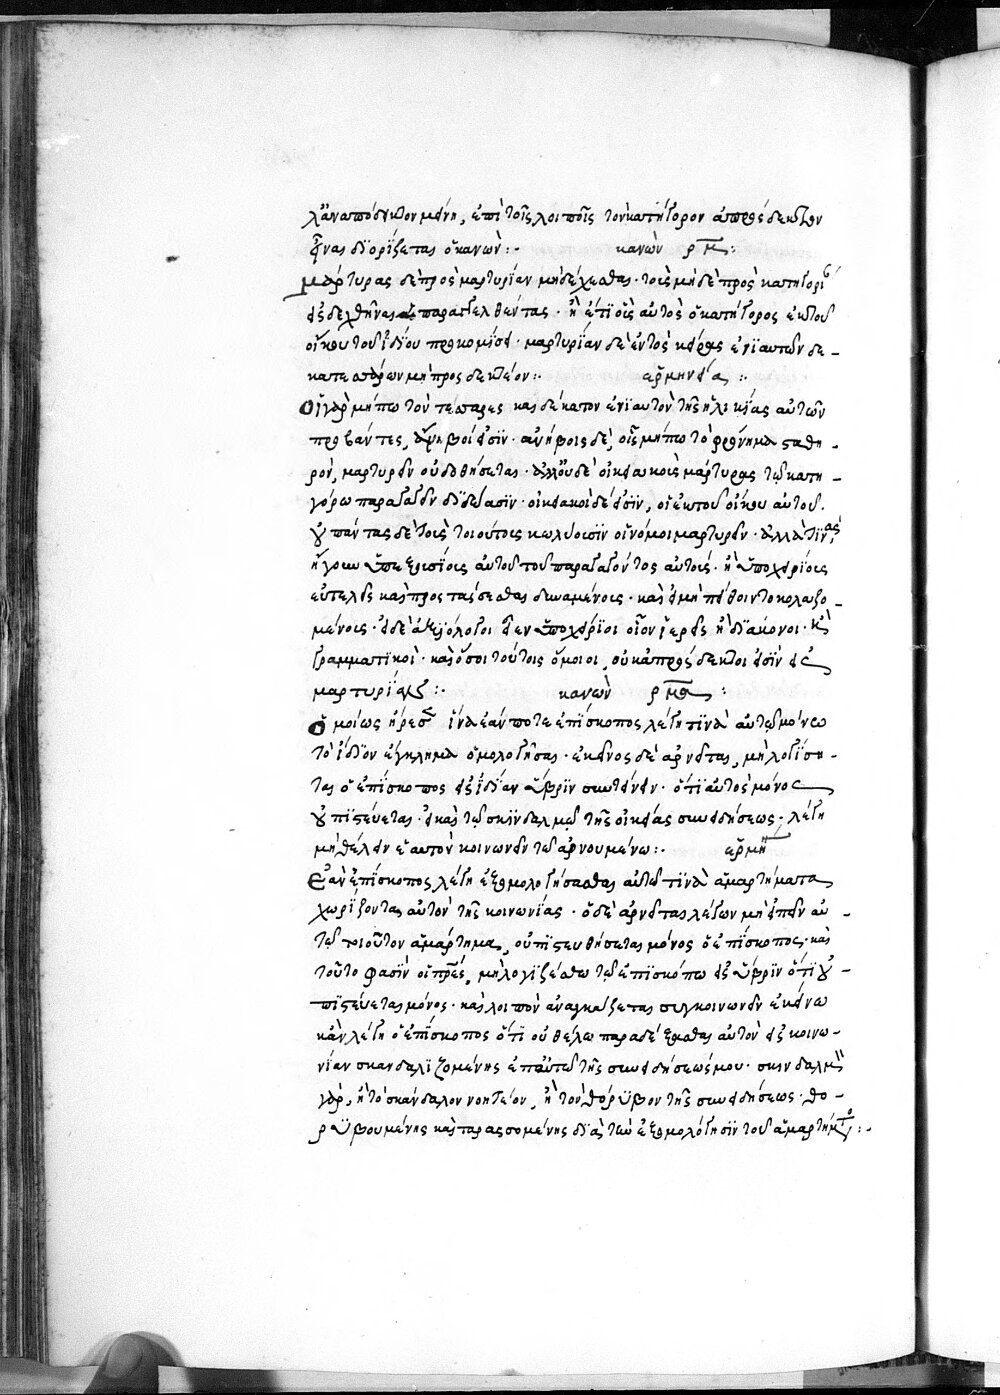 λὰν ἀπόδεικτον μένῃ, ἐπὶ τοῖς λοιποῖς τὸν κατήγορον ἀπρόσδεκτον
εἶναι διορίζεται ὁ κανών:· κανὼν ρμ:
Μάρτυρας δὲ πρὸς μαρτυρίαν μὴ δέχεσθαι· τοὺς μὴ δὲ πρὸς κατηγορί
εἰσδεχθῆναι παραγγελθέντας· ἢ ἐπὶ οἷς αὐτὸς ὁ κατήγορος ἐκ τοῦ
οἴκου τοῦ ἰδίου προκομίσει· μαρτυρίαν δὲ ἐντὸς καίρας ἐνιαυτῶν δε-
κατεσσάρων μὴ προσδεκτέον:· ἑρμηνεία:·
Οἱ γὰρ μήπω τὸν τέσσαρες καὶ δέκατον ἐνιαυτὸν τῆς ἡλικίας αὐτῶν
προβάντες, ἄνηβοί εἰσιν· ἀνήβοις δὲ, οἷς μήπω τὸ φρόνημα σταθη-
ρὸν, μαρτυρεῖν οὐ δοθήσεται· ἀλλ' οὐδὲ οἰκειακοὺς μάρτυρας τῷ κατη-
γόρῳ παραγαγεῖν διδόασιν· οἰκειακοὶ δέ εἰσιν, οἱ ἐκ τοῦ οἴκου αὐτοῦ.
οὐ πάντας δὲ τοὺς τοιούτους κωλύουσιν οἱ νόμοι μαρτυρεῖν· ἀλλὰ τινὰς
ἤγουν ὑπεξουσίους αὐτοῦ τοῦ παραγαγόντος αὐτούς· ἢ ὑποχειρίους
εὐτελεῖς καὶ προστάσσεσθαι δυναμένους· καὶ εἰ μὴ πείθοιντο κολαζο-
μένους· εἰ δὲ ἀξιόλογοι εἶεν ὑποχείριοι οἷον ἱερεῖς ἢ διάκονοι· καὶ
γραμματικοί· καὶ ὅσοι τούτοις ὅμοιοι, οὐκ ἀπρόσδεκτοι εἰσὶν εἰς
μαρτυρίαν:· κανὼν ρμα:
Ὁμοίως ἤρεσεν ἵνα ἐάν ποτε ἐπίσκοπος λέγῃ τινὰ αὐτῷ μόνῳ
τὸ ἴδιον ἔγκλημα ὁμολογῆσαι· ἐκεῖνος δὲ ἀρνεῖται, μὴ λογίση-
ται ὁ ἐπίσκοπος εἰς ἰδίαν ὕβριν συντείνειν· ὅτι αὐτὸς μόνος
οὐ πιστεύεται· εἰ καὶ τῷ σκινδαλμῷ τῆς οἰκείας συνειδήσεως· λέγῃ
μὴ θέλειν ἑαυτὸν κοινωνεῖν τῷ ἀρνουμένῳ:· ἑρμη
Ἐὰν ἐπίσκοπος λέγῃ ἐξομολογήσασθαι αὐτῷ τινὰ ἁμαρτήματα
χωρίζοντα αὐτὸν τῆς κοινωνίας· ὁ δὲ ἀρνεῖται λέγων μὴ εἰπεῖν αὐ-
τῷ τοιοῦτον ἁμάρτημα, οὐ πιστευθήσεται μόνος ὁ ἐπίσκοπος· καὶ
τοῦτο φασὶν οἱ πρες, μὴ λογιζέσθω τῷ ἐπισκόπῳ εἰς ὕβριν ὅτι οὐ-
πιστεύεται μόνος· καὶ λοιπὸν ἀναγκάζεται συγκοινωνεῖν ἐκείνῳ
κἂν λέγῃ ὁ ἐπίσκοπος ὅτι οὐ θέλω παραδέξασθαι αὐτὸν εἰς κοινω-
νίαν σκανδαλιζομένης ἐπ' αὐτῷ τῆς συνειδήσεώς μου· σκινδαλμὸν
γὰρ, ἢ τὸ σκάνδαλον νοητέον, ἢ τὸν θόρυβον τῆς συνειδήσεως· θο-
ρυβουμένης καὶ ταρασσομένης διὰ τὴν ἐξομολόγησιν τοῦ ἁμαρτήματος:·